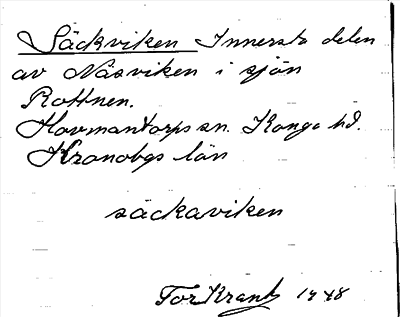 Säckviken Innersta delen
av Näsviken i sjön
Rottnen.
Hovmantorps sn. Konga hd.
Kronobgs län
säckaviken
Tor Krantz 1948